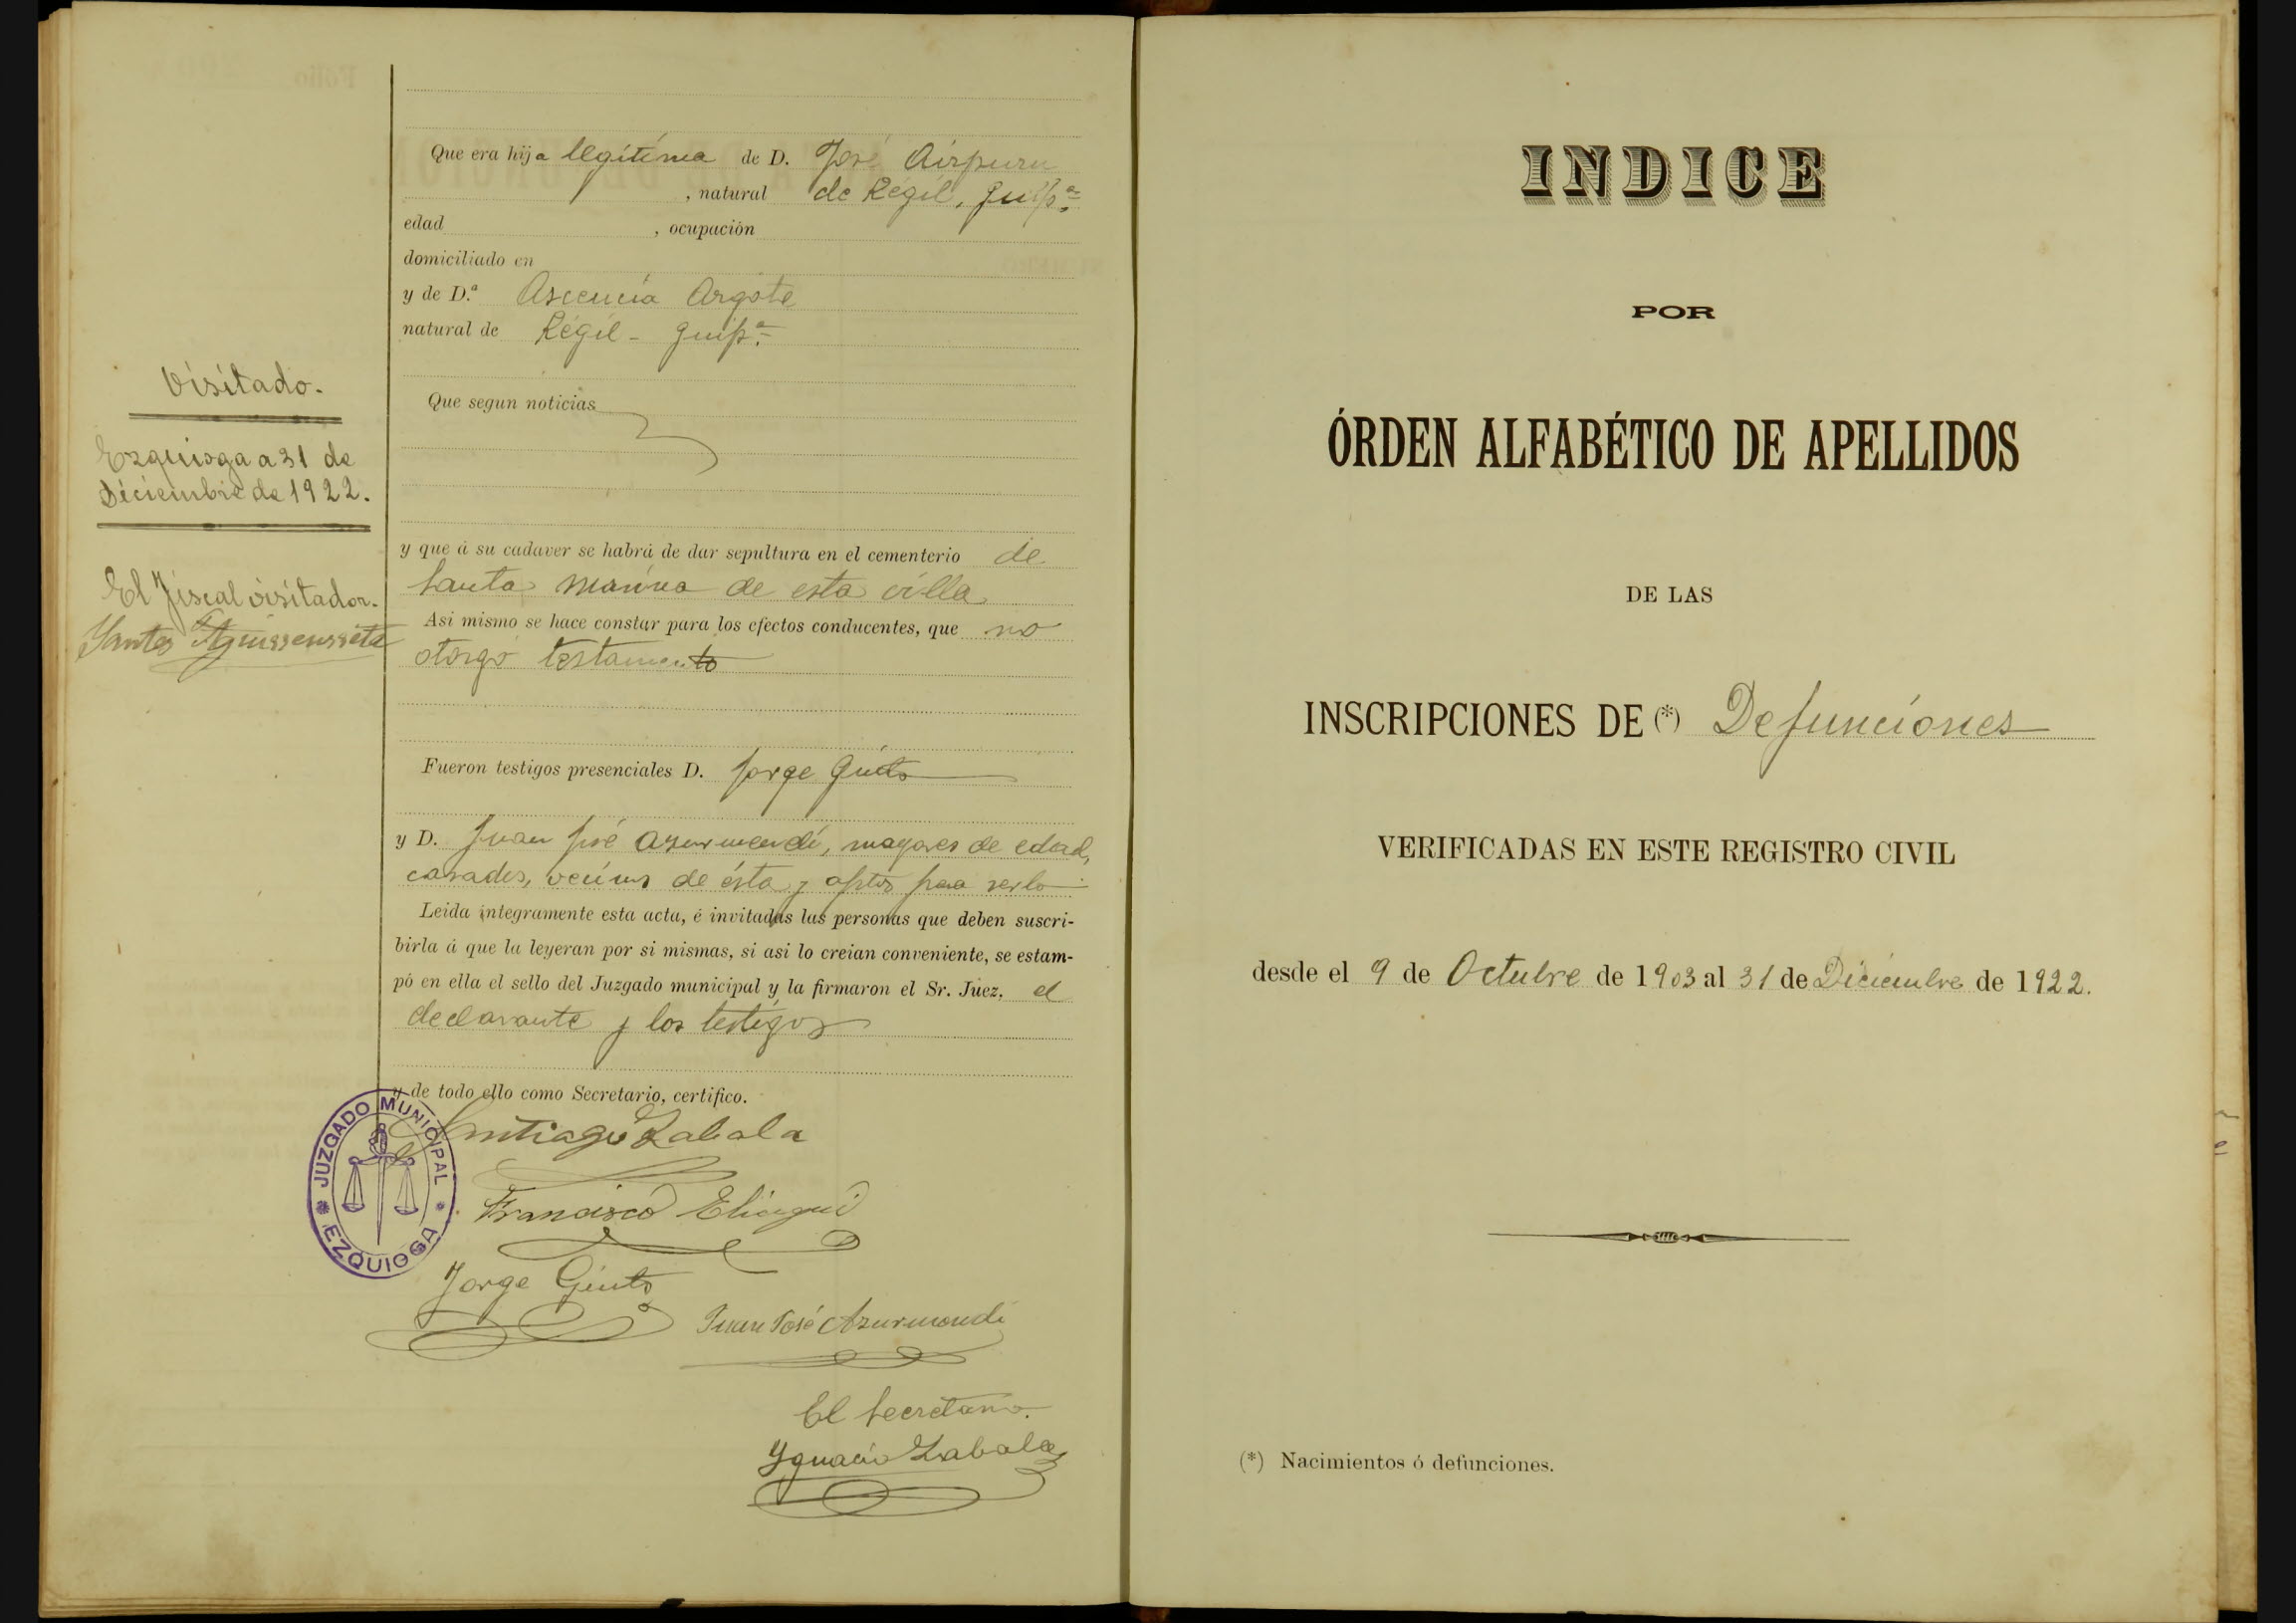 Que era hija legítima de D. José Aizpuru
, natural de Régil, Guipª
edad , ocupación
domiciliado en
y de D.ª Ascencia Argote
natural de Régil - Guipª
Que segun noticias
y que á su cadaver se habrá de dar sepultura en el cementerio de
Santa Marina de esta villa
Asi mismo se hace constar para los efectos conducentes, que no
otorgó testamento
Fueron testigos presenciales D. Jorge
y D. Juan José Azurmendi, mayores de edad,
casados, vecinos de ésta y aptos para serlo
Leida íntegramente esta acta, é invitadas las personas que deben suscri-
birla á que la leyeran por si mismas, si asi lo creian conveniente, se estam-
pó en ella el sello del Juzgado municipal y la firmaron el Sr. Juez, el
declarante y los testigos
y de todo ello como Secretario, certifico.
Santiago Zabala
Francisco
Jorge
Juan José Azurmendi
El Secretario.
Ygnacio Zabala
JUZGADO MUNICIPAL
EZQUIOGA
Visitado.
Ezquioga a 31 de
Diciembre de 1922.
El Fiscal visitador.
Santos
INDICE
POR
ÓRDEN ALFABÉTICO DE APELLIDOS
DE LAS
INSCRIPCIONES DE (*) Defunciones
VERIFICADAS EN ESTE REGISTRO CIVIL
desde el 9 de Octubre de 1903 al 31 de Diciembre de 1922.
(*) Nacimientos ó defunciones.